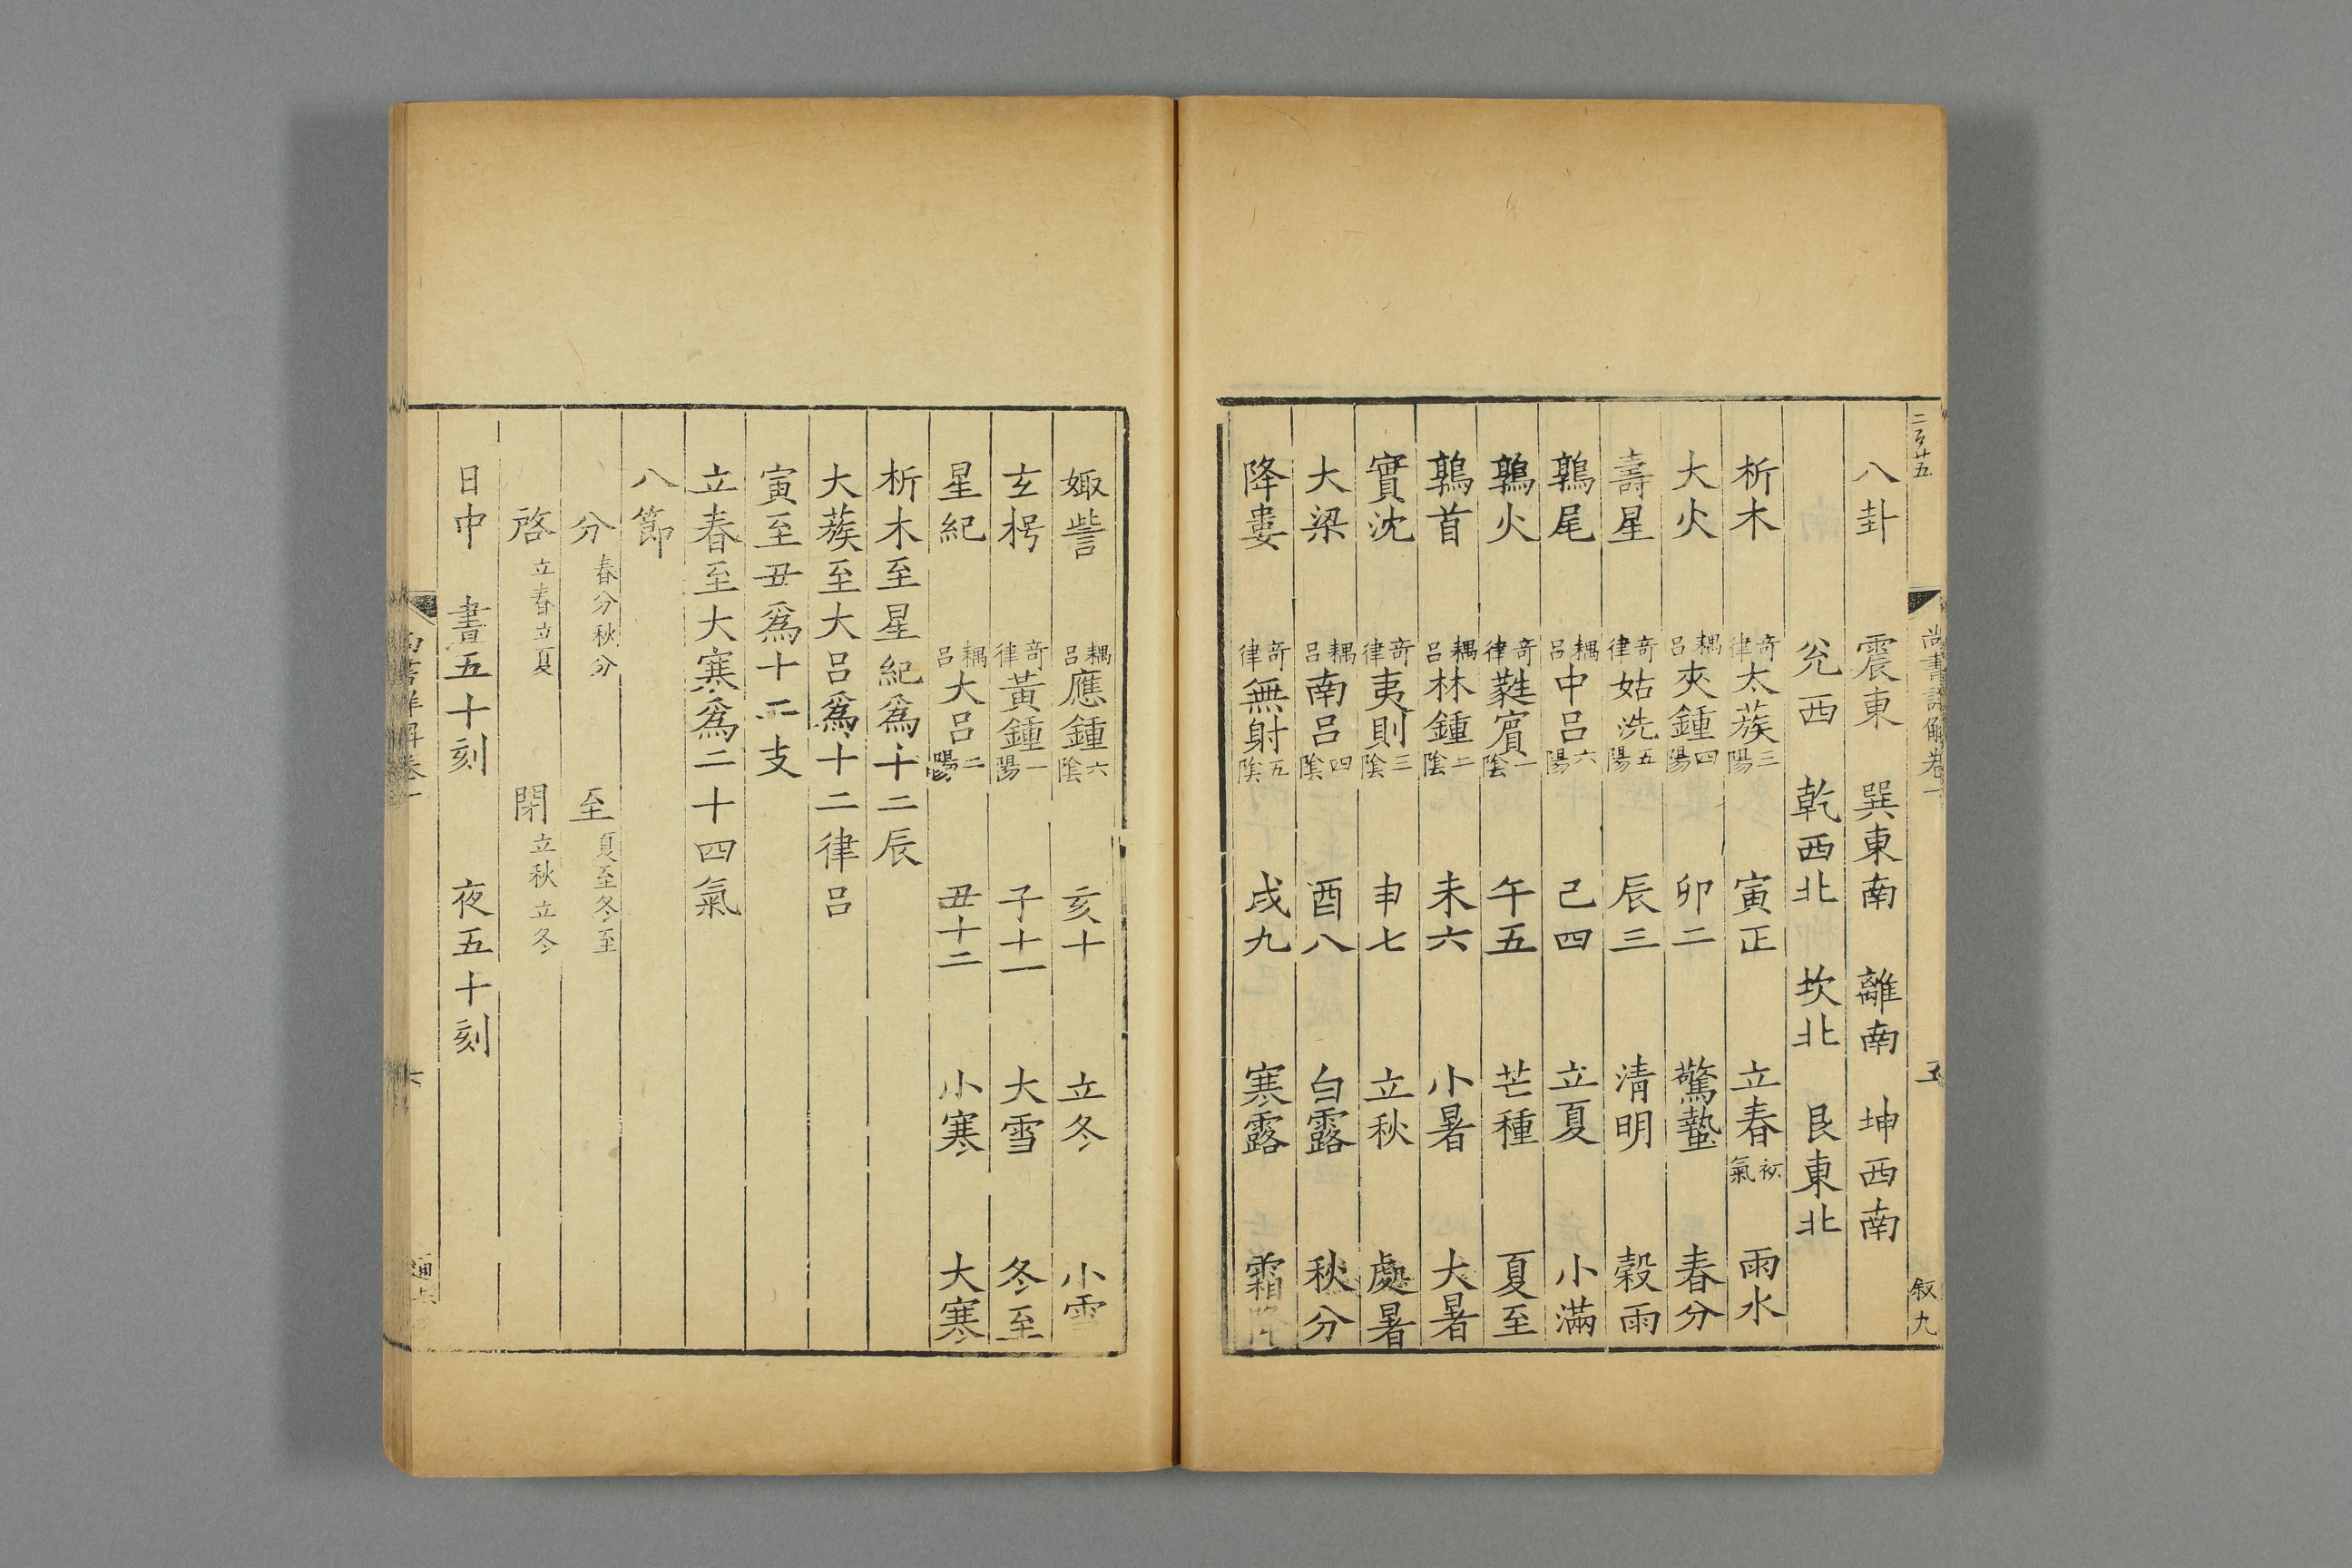 尚書詳解卷一 五 叙九
八卦 震東 巽東南 離南 坤西南
兊西 乾西北 坎北 艮東北
析木 奇律太蔟三陽 寅正 立春 氣 雨水
大火 耦吕夾鍾四陽 卯二 驚蟄 春分
壽星 奇律姑洗五陽 辰三 清明 榖雨
鶉尾 耦吕中吕六陽 己四 立夏 小滿
鶉火 奇律蕤賓一陰 午五 芒種 夏至
鶉首 耦吕林鍾二陰 未六 小暑 大暑
實沈 奇律夷則三陰 申七 立秋 處暑
大梁 耦吕南吕四陰 酉八 白露 秋分
降婁 奇律無射五陰 戌九 寒露 霜降
娵訾 耦吕應鍾六陰 亥十 立冬 小雪
玄枵 奇律黃鍾一陽 子十一 大雪 冬至
星紀 耦吕大吕二陽 丑十二 小寒 大寒
析木至星紀爲十二辰
大蔟至大吕爲十二律吕
寅至丑爲十二支
立春至大寒爲二十四氣
八節
分春分秋分 至夏至冬至
啓立春立夏 閉立秋立冬
日中 晝五十刻 夜五十刻